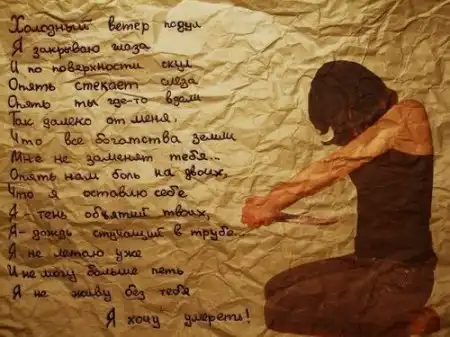 Холодный ветер подул
Я закрываю глаза
И по поверхности скул
Опять стекает слеза
Опять ты где-то вдали
Так далеко от меня,
Что все богатства земли
Мне не заменят тебя...
Опять нам боль на двоих,
Что я оставлю себе
Я - тень объятий твоих,
Я - дождь стучащий в трубе.
Я не летаю уже
И не могу больше петь
Я не живу без тебя
Я хочу умереть!